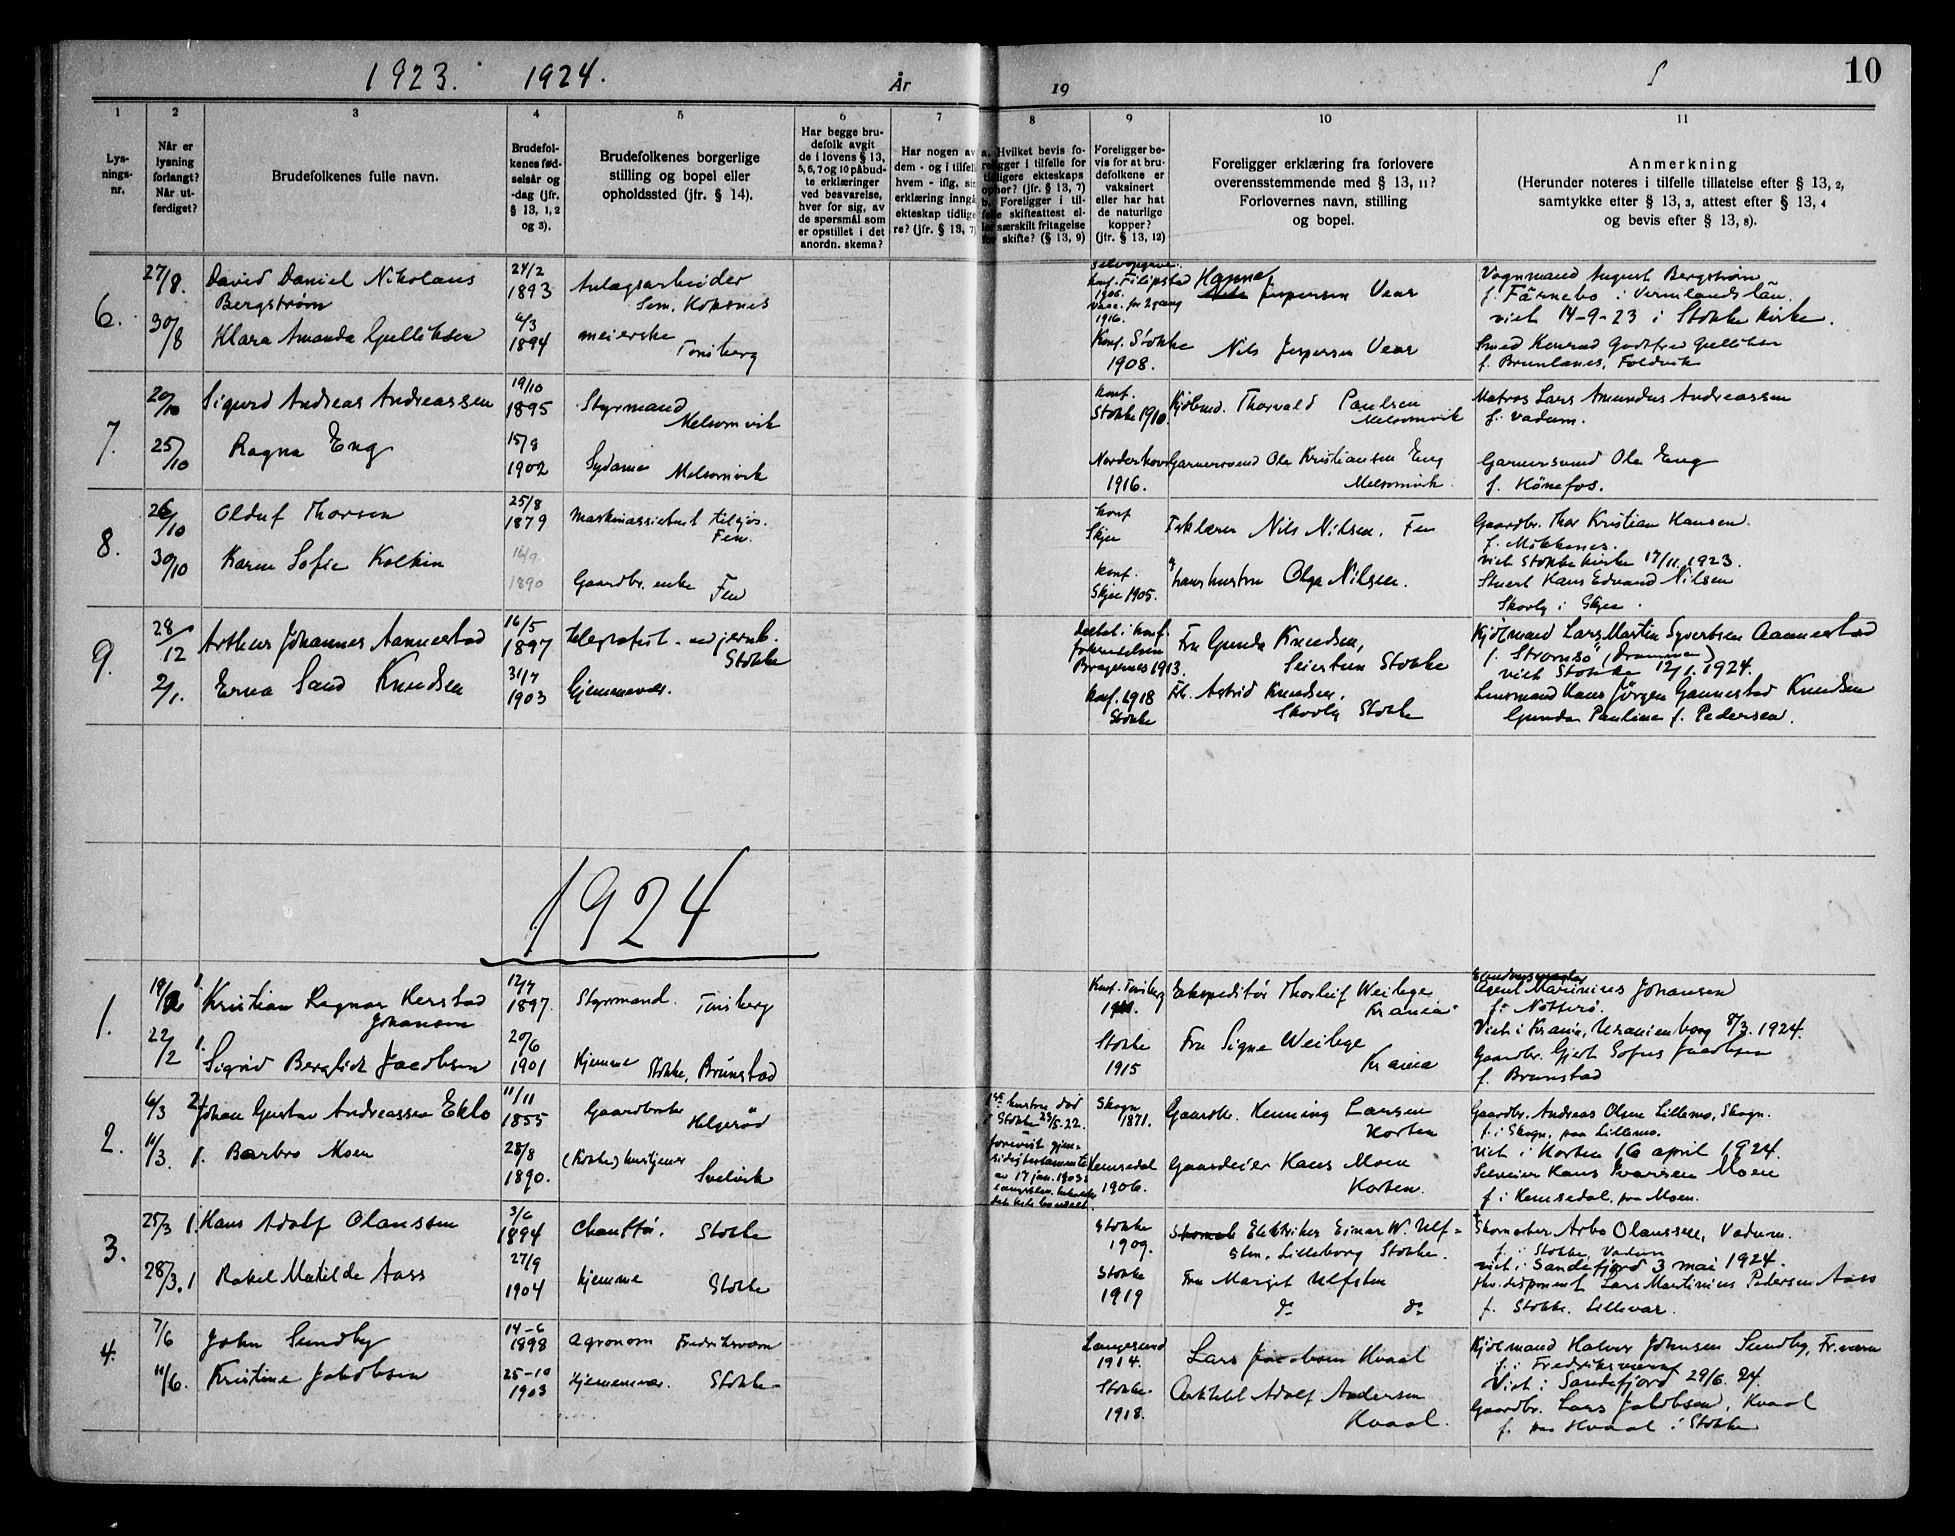 1923. 1924.
År
19
10
1
Lys-
nings-
nr.
2
Når er
lysning
forlangt?
Når ut-
ferdiget?
3
Brudefolkenes fulle navn.
4
Brudefol-
kenes fød-
selsår og
-dag (jfr.
§ 13, 1, 2
og 3).
5
Brudefolkenes borgerlige
stilling og bopel eller
opholdssted (jfr. § 14).
6
Har begge bru-
defolk avgit
de i lovens § 13,
5, 6, 7 og 10 påbud-
te erklæringer
ved besvarelse,
hver for sig, av
de spørsmål som
er opstillet i det
anordn. skema?
7
Har nogen av
dem - og i tilfelle
hvem - iflg. sin
erklæring inngå
ekteskap tidlige
re? (jfr. § 13, 7)
8
a. Hvilket bevis fo-
religger i tilfelle for
tidligere ekteskaps
ophør? (jfr. § 13, 7)
b. Foreligger i til-
felle skifteattest el-
ler særskilt fritagelse
for skifte? (§ 13, 9)
9
Foreligger be-
vis for at bru-
defolkene er
vaksinert
eller har hat
de naturlige
kopper?
(jfr. § 13, 12)
10
Foreligger erklæring fra forlovere
overensstemmende med § 13, 11?
Forlovernes navn, stilling
og bopel.
11
Anmerkning
(Herunder noteres i tilfelle tillatelse efter § 13, 2,
samtykke efter § 13, 3, attest efter § 13, 4
og bevis efter § 13, 8).
6.
27/8.
David Daniel Nikolaus
Bergstrøm
24/2
1893
Anlægsarbeider
Sem,
konf. Filipstad
1906.
vacc. for 2 gang
1916.
Hanna Jespersen Vear
Vognmand August Bergstrøm
f. Färnebo i Vermlands län.
viet 14-9-23 i Stokke kirke.
30/8
Klara Amanda Gulliksen
6/3
1894
meierske
Tønsberg
Konf. Stokke
1908.
Nils Jespersen Vear
Smed Konrad Godtfred Gulliksen
f. Brunlanes, Foldvik
7.
20/10
Sigurd Andreas Andreassen
19/10
1895
Styrmand
Melsomvik
konf.
Stokke 1910.
Thorvald Paulsen
Melsomvik
Matros Lars Amundus Andreassen
f. Vadum.
25/10
Ragna Eng
15/8
1902
Sydame Melsomvik
Norderhov
1916.
Garversvend Ole Kristiansen Eng
Melsomvik.
Garversvend Ole Eng
f. Hönefos.
8.
26/10
Oluf Thorsen
25/8
1879
Maskinassistent tilsjøs.
Fen.
konf
Skjee
Nils Nilsen. Fen
Gaardbr. Thor Kristian Hansen.
viet Stokke kirke 17/11 1923.
30/10
Karen Sofie Kolkin
16/9
1890
Gaardbr. enke Fen
konf.
Skjee 1905.
hans hustru Olga Nilsen.
Stuert Hans Edvard Nilsen
Skovly i Skjee.
9.
28/12
Arthur Johannes Aannestad
16/5
1897
telegrafist ved jernb.
Stokke
Bragernes 1913.
Fru Gunda Knudsen,
Seierstun Stokke
Kjølmand Lars Martin Syvertsen Aannestad
f. Strømsø (Drammen)
viet Stokke 12/1. 1924.
2/1.
Erna Sand Knudsen
31/7
1903
hjemmevær.
konf. 1918
Stokke
Frk. Astrid Knudsen,
Skovly Stokke
Lensmand Hans Jörgen Gannestad Knudsen
Gunda Pauline f. Pedersen.
1924
1.
19/2
Kristian Ragnar Herstad
Johansen
12/7
1897.
Styrmand. Tønsberg
Konf. Tønsberg
Ekspeditør Thorleif Weilege
Krania
Agent Marinius Johansen
f. Nøtterø.
Viet i Krania, Uranienborg 8/3. 1924.
22/2 1.
Sigrid Bergliot Jacobsen
20/6
1901
Hjemme Stokke, Brunstad
Stokke
1915
Fru Signe Weilege
Krania
Gaardbr. Gjert Sofus Jacobsen
f. Brunstad
2.
6/3 2.
Johan Gustav Andreassen Eklo
11/11
1855
Gaardbruker
Helgerød
1ste hustru död
i Stokke 25/5. 22.
forevist gjen-
sidig testamente
av 17 jan. 1903:
Skogn
1871.
Gaardbr. Henning Larsen
Horten
Gaardbr. Andreas Olsen Lillemo, Skogn.
f. i Skogn, paa Lillemo.
viet i Horten 16 april 1924.
11/3. 1.
Barbro Moen
28/8
1890.
(Kokke) hustjener
Svelvik
Hemsedal
1906.
Gaardeier Hans Moen
Horten.
Selveier Hans Ivarsen Moen
f. i Hemsedal, paa Moen.
3.
25/3 1.
Hans Adolf Olaussen
3/6
1894
Chauffør. Stokke
Stokke
1909.
Elektriker Einar W. Ulf-
sten, Lilleborg Stokke.
Skomaker Arbo Olaussen, Vadum.
f. i Stokke, Vadum
viet i Sandefjord 3 mai 1924.
28/3. 1
Rakel Matilde Aass
27/9
1904
hjemme Stokke
Stokke
1919
Fru Margit Ulfsten
do do
Hv. disponent Lars Martinius Pedersen Aass
f. Stokke. Lillevar.
4.
7/6
John Sundby
14-6
1898
Agronom Fredriksværn
Langesund
1914.
Lars Jacobsen Kvaal
Kjølmand Halvor Johnsen Sundby, Fr.værn
f. i Fredriksværn
Viet i Sandefjord 29/6. 24.
11/6.
Kristine Jakobsen
25-10
1903
Hjemmevær. Stokke
Stokke
1918.
Arkitekt Adolf Andersen
Kvaal.
Gaardbr. Lars Jakobsen, Kvaal
f. paa Kvaal i Stokke